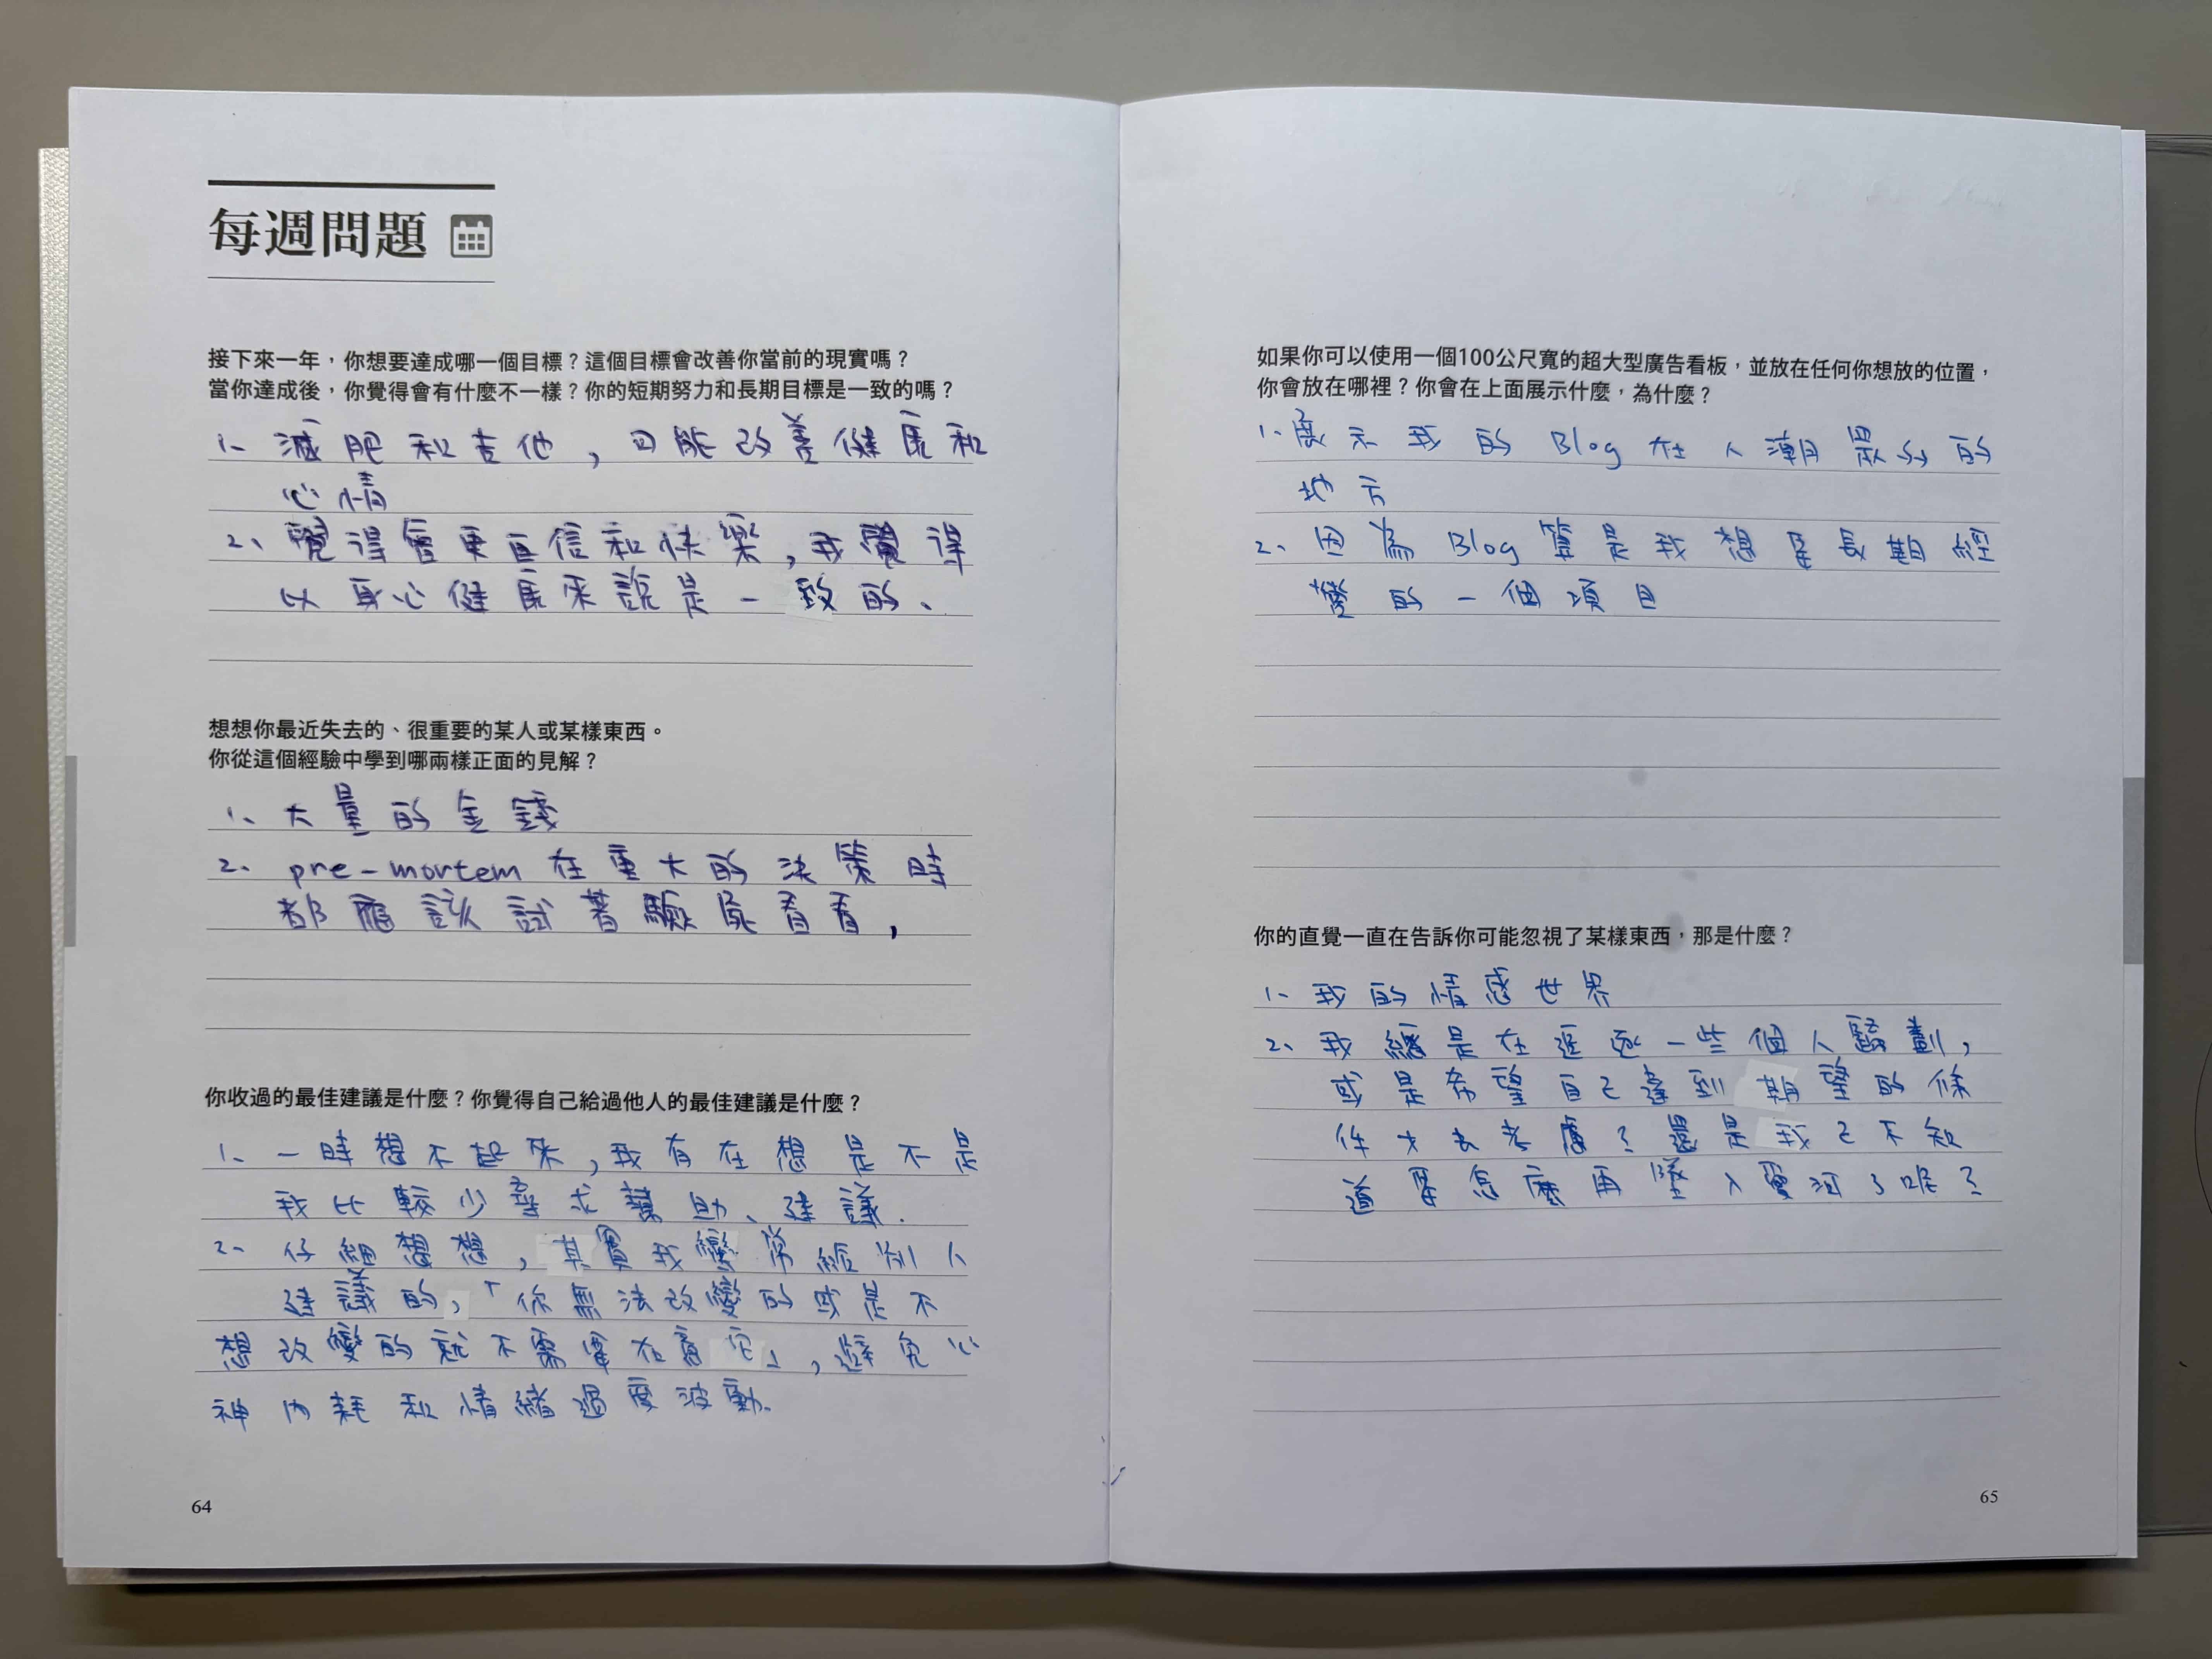 每週問題
接下來一年，你想要達成哪一個目標？這個目標會改善你當前的現實嗎？
當你達成後，你覺得會有什麼不一樣？你的短期努力和長期目標是一致的嗎？
1、減肥和吉他，可能改善健康和
心情
2、覺得會更自信和快樂，我覺得
以身心健康來說是一致的、
想想你最近失去的、很重要的某人或某樣東西。
你從這個經驗中學到哪兩樣正面的見解？
1、大量的金錢
2、pre-mortem 在重大的決策時
都應該試著驗屍看看，
你收過的最佳建議是什麼？你覺得自己給過他人的最佳建議是什麼？
1、一時想不起來，我有在想是不是
我比較少尋求幫助、建議.
2、仔細想想，其實我蠻常給別人
建議的，「你無法改變的或是不
想改變的就不需要在意它」，避免心
神內耗和情緒過度波動.
64
如果你可以使用一個100公尺寬的超大型廣告看板，並放在任何你想放的位置，
你會放在哪裡？你會在上面展示什麼，為什麼？
1、展示我的 Blog 在人潮眾多的
地方
2、因為 Blog 算是我想要長期經
營的一個項目
你的直覺一直在告訴你可能忽視了某樣東西，那是什麼？
1、我的情感世界
2、我總是在追逐一些個人計劃，
或是希望自己達到期望的條
件才去考慮？還是我已不知
道要怎麼再墜入愛河了呢？
65